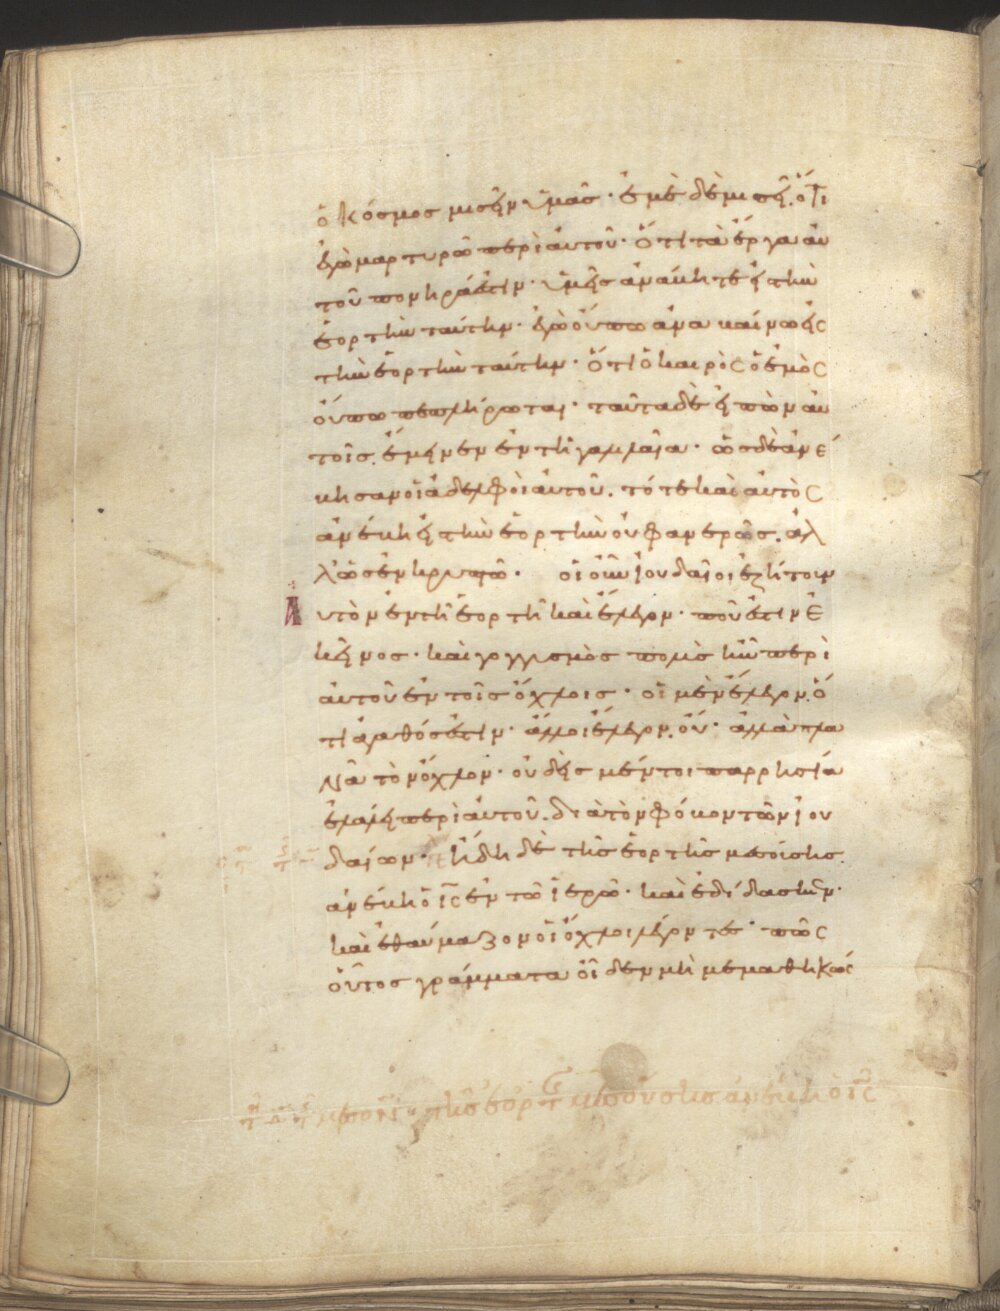 ὁ κόσμος μισεῖν ὑμᾶς· ἐμὲ δὲ μισεῖ. ὅτι
ἐγὼ μαρτυρῶ περὶ αὐτοῦ· ὅτι τὰ ἔργα αὐ
τοῦ πονηρά ἐστιν· ὑμεῖς ἀνάβητε εἰ τὴν
ἑορτὴν ταύτην· ἐγὼ οὔπω ἀναβαίνω εἰς
τὴν ἑορτὴν ταύτην· ὅτι ὁ καιρὸς ὁ ἐμὸς
οὔπω πεπλήρωται· ταῦτα δὲ εἰπὼν αὐ
τοῖς. ἔμεινεν ἐν τῇ γαλιλαία· ὡς δὲ ἀνέ
βησαν οἱ ἀδελφοὶ αὐτοῦ. τότε καὶ αὐτὸς
ἀνέβη εἰ τὴν ἑορτὴν οὐ φανερῶς. ἀλ
λ' ὡς ἐν κρυπτῶ· οἱ οὖν ἰουδαῖοι ἐζήτουν
Αυτὸν ἐν τῇ ἑορτῇ καὶ ἔλεγον· ποῦ ἐστιν ἐ
κεῖνος· καὶ γογγυσμὸς πολὺς ἦν περὶ
αὐτοῦ ἐν τοῖς ὄχλοις· οἱ μὲν ἔλεγον. ὅ
τι ἀγαθός ἐστιν· ἄλλοι ἔλεγον. οὔ· ἀλλὰ πλα
νᾶ τὸν ὄχλον· οὐδεὶς μέντοι παρρησία
ἐλάλει περὶ αὐτοῦ. διὰ τὸν φόβον τῶν ἰου
δαίων· ἤδη δὲ τῆς ἑορτῆς μεσούσης
ἀνέβη ὁ ις ἐν τῶ ἱερῶ· καὶ ἐδίδασκεν·
καὶ ἐθαύμαζον οἱ ὄχλοι λέγοντες· πῶς
οὗτος γράμματα οἶδεν μὴ μεμαθηκώς
τῆς ἑορτ μεσούσης ἀνέβη ὁ ις